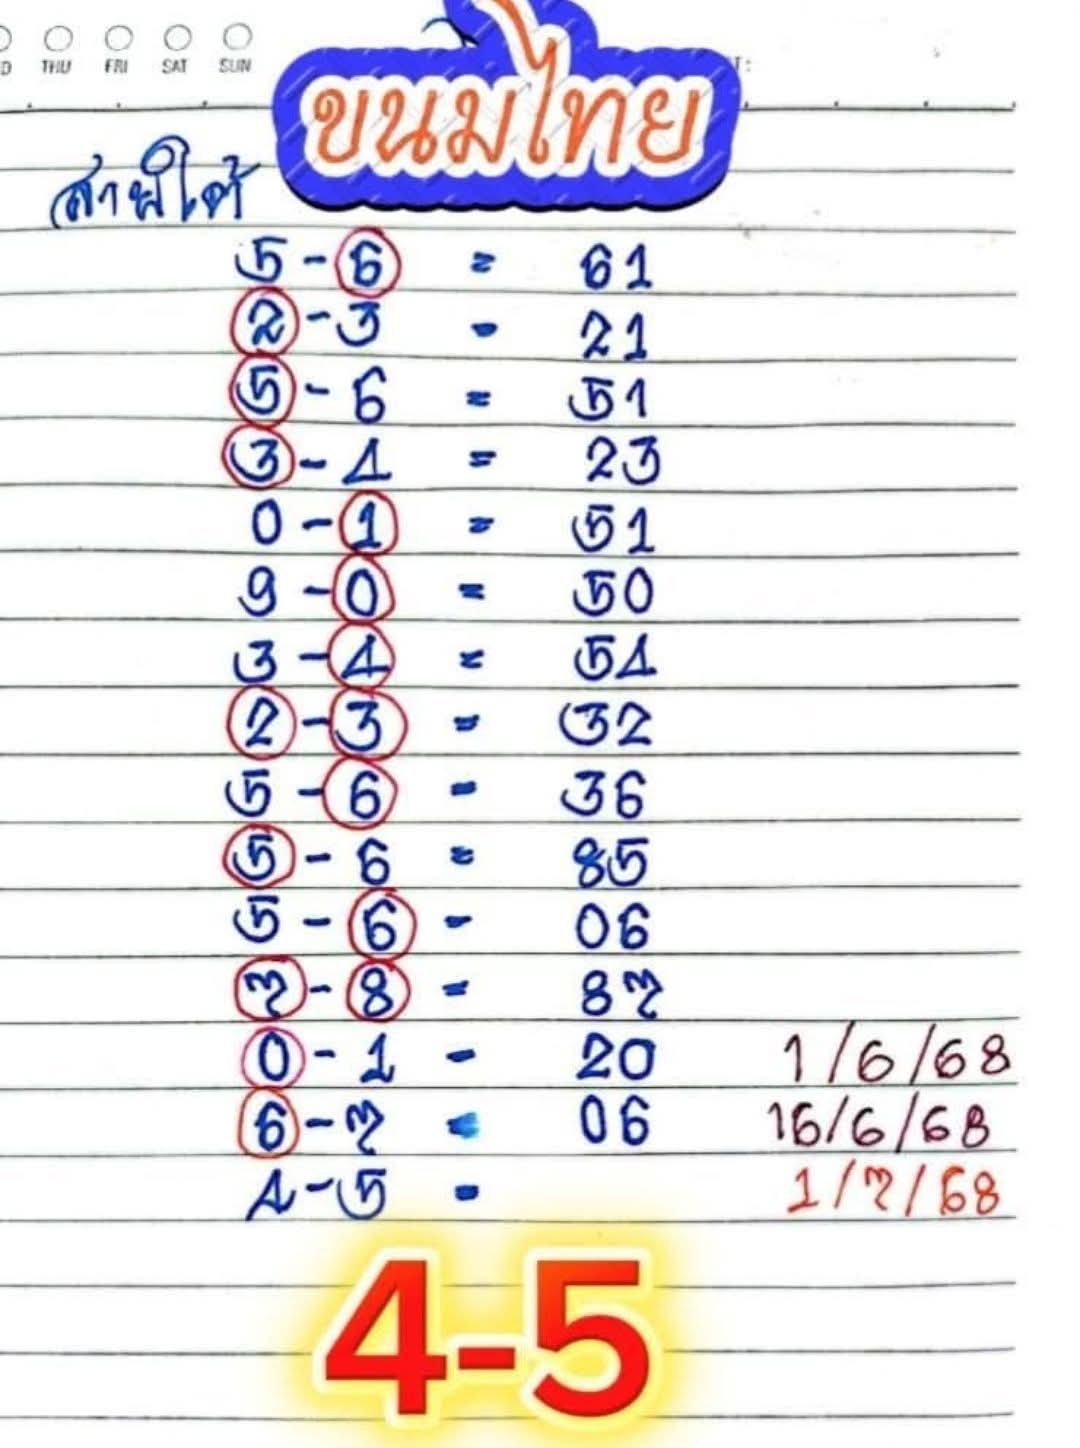 THU FRI SAT SUN
ขนมไทย
สายใต้
5-6 = 61
2-3 - 21
5-6 = 51
3-4 = 23
0-1 = 51
9-0 = 50
3-4 = 54
2-3 = 32
5-6 - 36
5-6 = 85
5-6 - 06
7-8 = 87
0-1 - 20 1/6/68
6-7 = 06 16/6/68
4-5 - 1/7/68
4-5